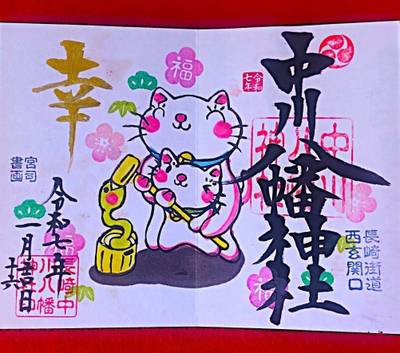 中川八幡神社
令和
七年
長崎街道
西玄関口
福
幸
宮司
書画
令和七年
一月
長崎中
川八幡